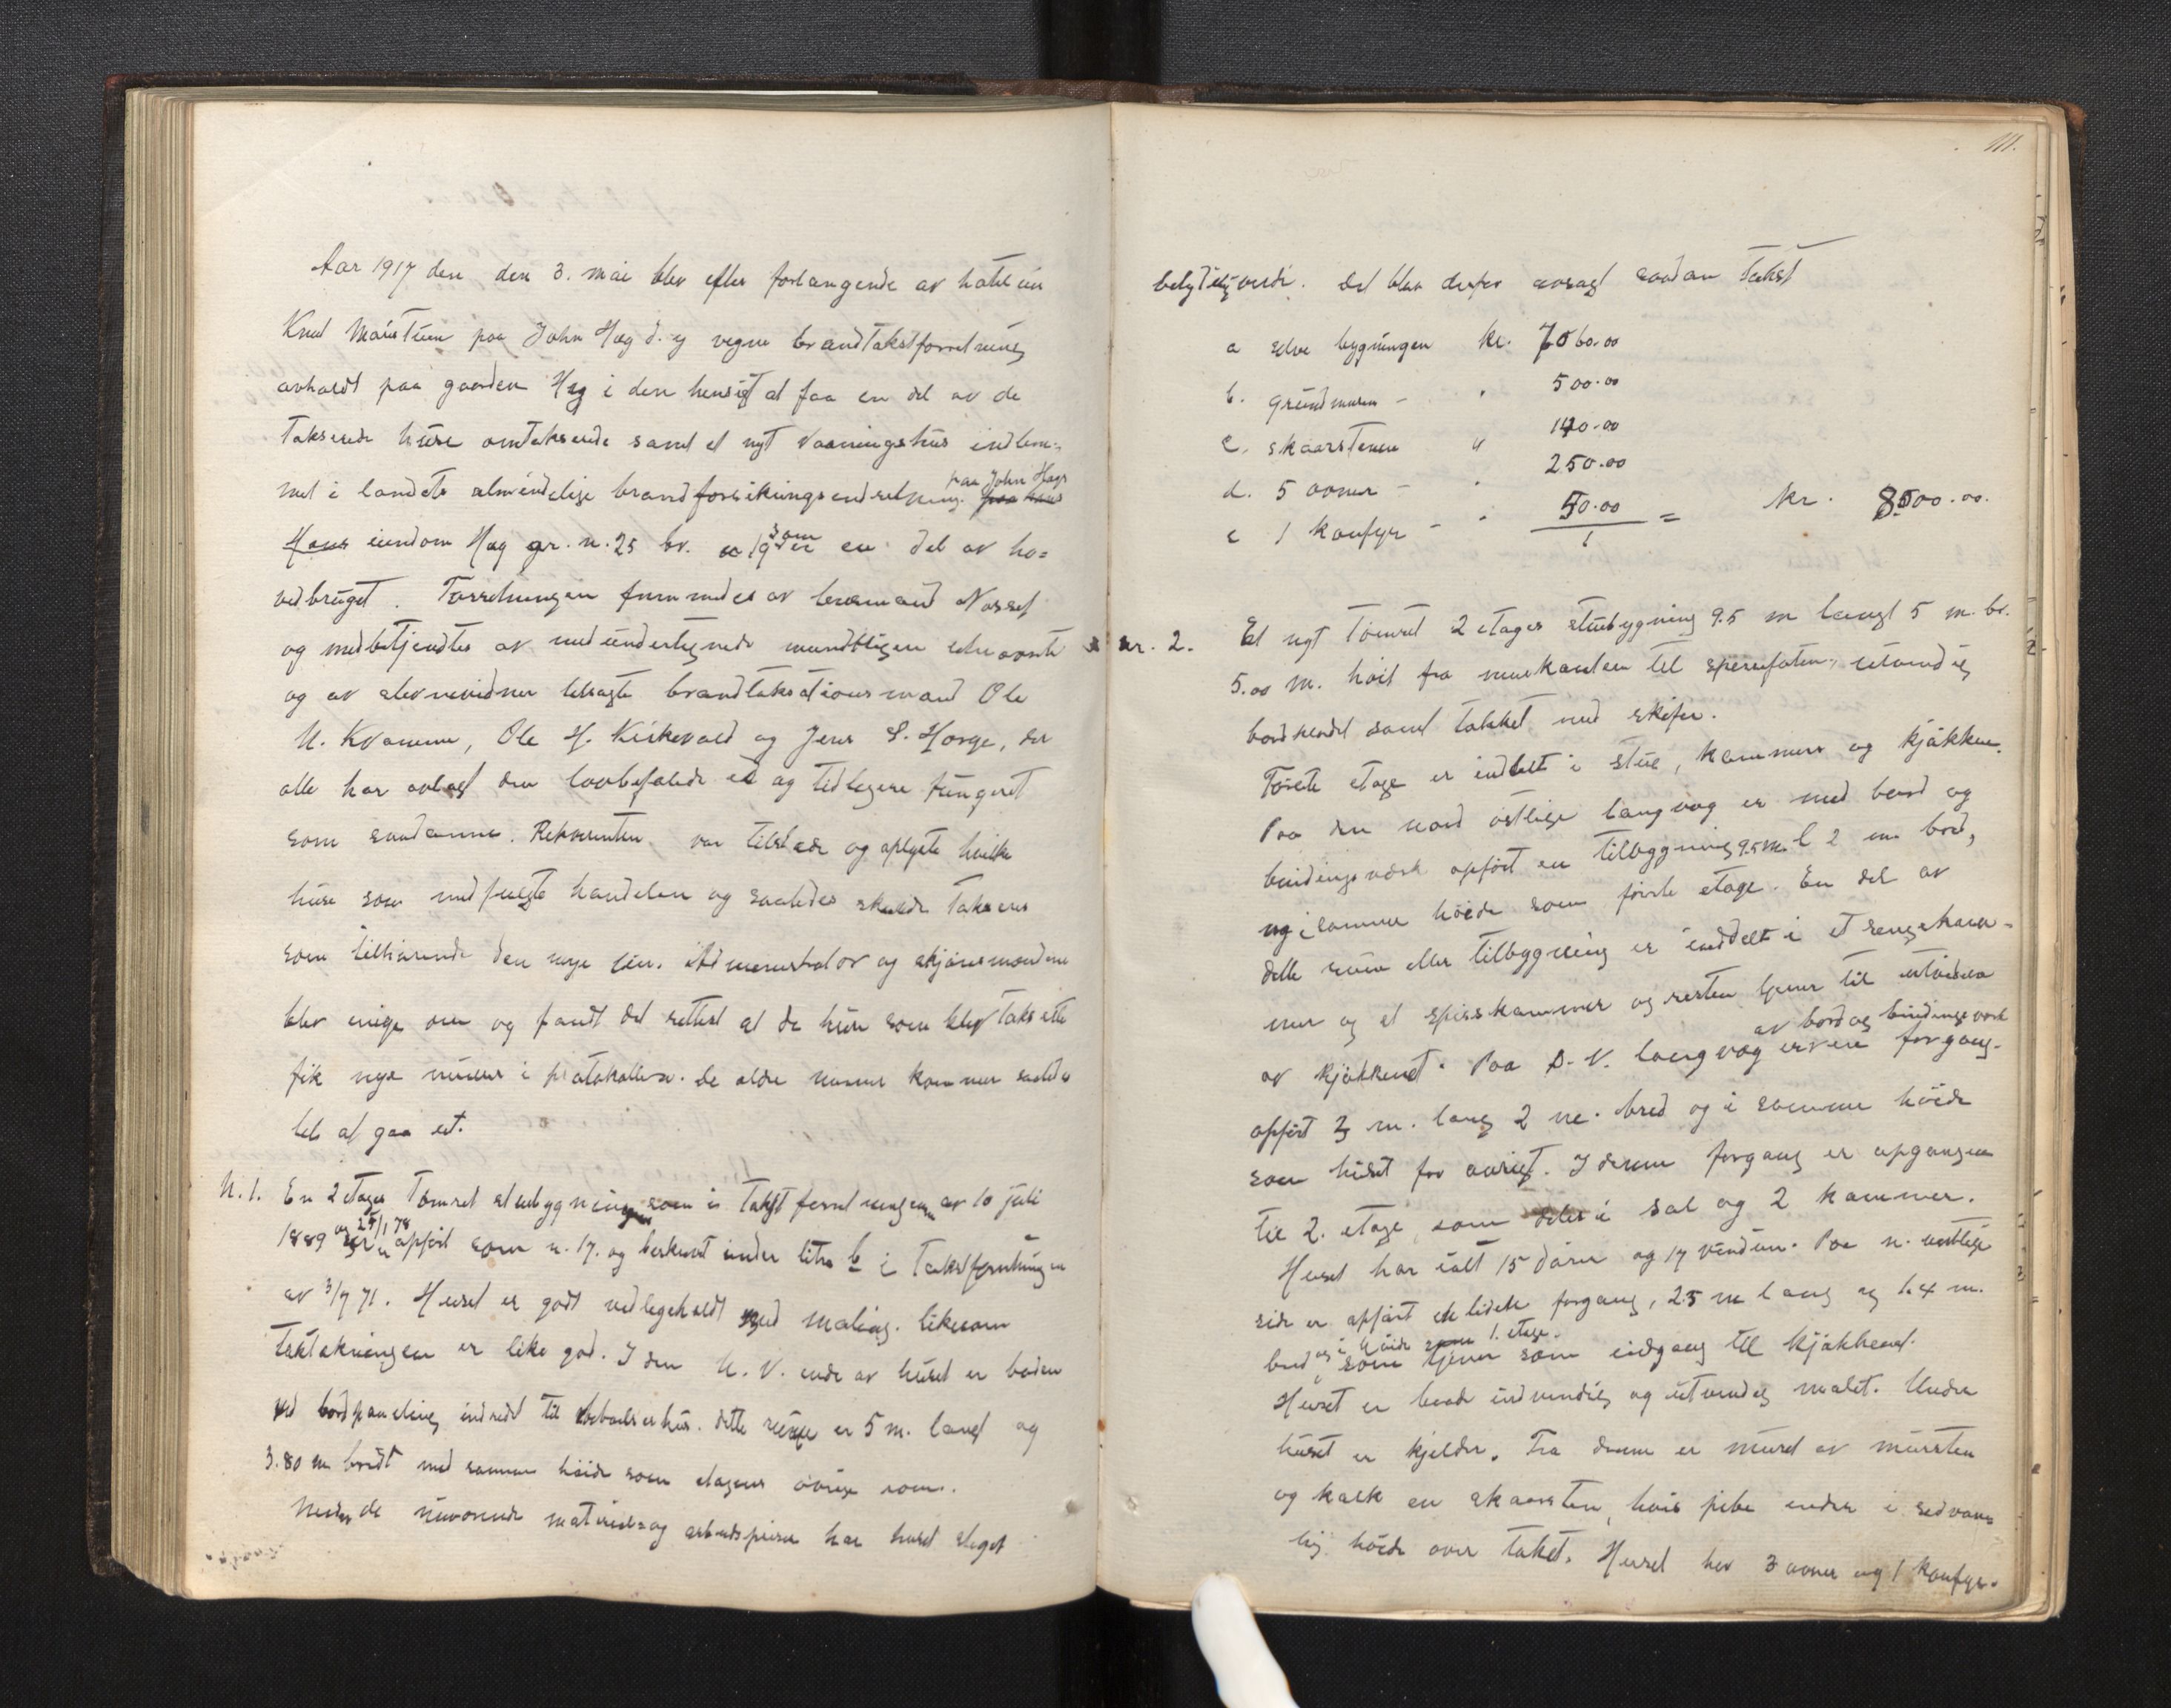 Aar 1917 den den 3. mai blev efter forlangende av
Knut paa John Hæg d. y vegne brandtakstforretning
avholdt paa gaarden Hæg i den hensigt at faa en del av de
takserede huse omtakserede samt et nyt vaaningshus indlem=
met i landets almindelige brandforsikringsindretning. paa John Hægs
eiendom Hæg gr. n. 25 br. n 19 som er en del av ho=
vedbruget. Forretningen fremmedes av lensmand Nesset
og medbetjendtes av med undertegnede
og av stevnevidner tilsagte brandtaksationsmænd Ole
N. Kvamme, Ole H. Kirkevold og Jens S. Horge, der
alle har avlagt den lovbefalede ed og tidligere fungeret
som saadanne. Rekvirenten var tilstede og oplyste hvilke
huse som medfulgte handelen og saaledes skulde takseres
som tilhørende den nye eier. Administrator og skjønsmændene
blev enige om og fandt det rettest at de huse som blev taksette
fik nye numer i protokollen. De ældre numer kommer saaledes
til at gaa ut.
N. 1. En 2 etages tømret stuebygning som i takstforretningen av 10 juli
1889 og 25/1 78 er opført som n. 17. og beskrevet under litra b i takstforretningen
av 3/7 71. Huset er godt vedlegeholdt med maling. likesom
taktækningen er like god. I den N. V. ende av huset er boden
ved bordpaneling indredet til beboelseshus. dette rum er 5 m. langt og
3.80 m bredt med samme høide som etagens øvrige rom.
Under de nuværende materiale og arbeidspriser har huset steget
111.
betydelig i verdi. Det blev derfor avsagt saadan Takst
a selve bygningen kr. 7060.00
b. grundmuren - " 500.00
c. skaarstenen " 140.00
d. 5 ovner - " 250.00
e 1 komfyr - " 50.00 = kr. 8000.00.
nr. 2. Et nyt tømret 2 etages stuebygning 9.5 m langt 5 m. br.
5.00 m. høit fra murkanten til sperrefoten, utvendig
bordklædt samt takket med skifer.
Første etage er inddelt i stue, kammers og kjøkken.
Paa den nord østlige langvæg er med bord og
bindingsverk opført en tilbygning 9.5 m. l 2 m bred,
og i samme høide som første etage. En del av
dette rum eller tilbygning er inddelt i et sengekam-
mer og et spisskammer og resten tjener til utvidelse
av kjøkkenet. Paa S. V. langvæg er en av bord og bindingsverk forgang
opført 3 m. lang 2 m. bred og i samme høide
som huset for øvrigt. I denne forgang er opgangen
til 2. etage, som deles i sal og 2 kammer.
Huset har ialt 15 dører og 17 vinduer. Paa n. vestlige
side er opført en liden forgang, 2.5 m lang og 1.4 m.
bred og i høide som 1. etage. som tjener som indgang til kjøkkenet.
Huset er baade indvendig og utvendig malet. Under
huset er kjelder. Fra denne er muret av mursten
og kalk en skaarsten, hvis pibe ender i sedvan-
lig høide over taket. Huset har 3 ovner og 1 komfyr.